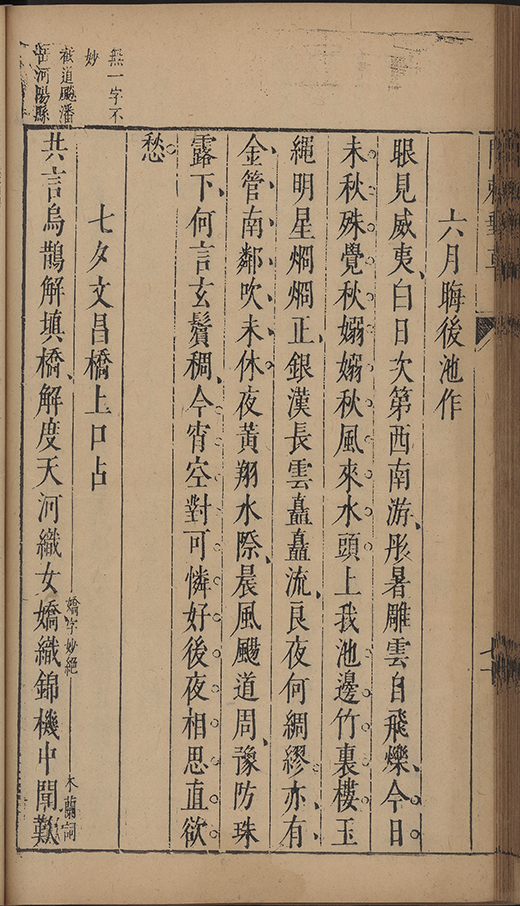 六月晦後池作
眼見威夷、白日次第西南游、彤暑雕雲自飛爍、今日
未秋殊覺秋嫋嫋秋風來水頭上我池邊竹裏樓玉
繩明星烱烱正、銀漢長雲矗矗流、良夜何綢繆、亦有
金管南鄰吹未休夜黃翔水際、晨風颸道周、豫防珠
露下、何言玄鬢稠、今宵空對可憐好後夜相思直欲
愁
無一字不
妙
七夕文昌橋上口占
共言烏鵲解填橋、解度天河織女嬌織錦機中聞歎
嬌字妙絕
木蘭詞
岳河陽縣